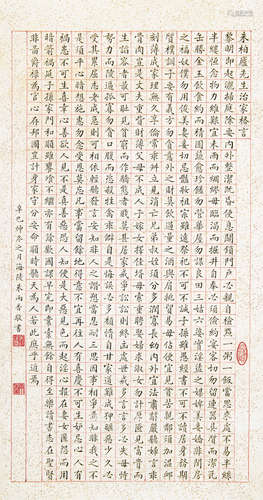 朱柏廬先生治家格言
黎明即起灑掃庭除要內外整潔既昏便息關鎖門戶必親自檢點一粥一飯當思來處不易半絲
半縷恆念物力維艱宜未雨而綢繆毋臨渴而掘井自奉必須儉約宴客切勿留連器具質而潔瓦
缶勝金玉飲食約而精園蔬愈珍饈勿營華屋勿謀良田三姑六婆實淫盜之媒婢美妾嬌非閨房
之福奴僕勿用俊美妻妾切忌艷妝祖宗雖遠祭祀不可不誠子孫雖愚經書不可不讀居身務期
質樸訓子要有義方勿貪意外之財勿飲過量之酒與肩挑貿易毋佔便宜見貧苦親鄰須加溫卹
刻薄成家理無久享倫常乖舛立見消亡兄弟叔姪須分多潤寡長幼內外宜法肅辭嚴聽婦言乖
骨肉豈是丈夫重貲財薄父母不成人子嫁女擇佳婿毋索重聘娶媳求淑女勿計厚奩見富貴而
生諂容者最可恥見貧窮而作驕態者賤莫甚居家戒爭訟訟則終凶處世戒多言言多必失毋恃
勢力而凌逼孤寡毋貪口腹而恣殺牲禽乖僻自是悔誤必多頹惰自甘家道難成狎暱惡少久必
受其累屈志老成急則可相依輕聽發言安知非人之譖愬當忍耐三思因事相爭焉知非我之不
是須平心暗想施惠勿念受恩莫忘凡事當留餘地得意不宜再往人有喜慶不可生妒忌心人有
禍患不可生喜幸心善欲人見不是真善惡恐人知便是大惡見色而起淫心報在妻女匿怨而用
暗箭禍延子孫家門和順雖饔飧不繼亦有餘歡國課早完即囊橐無餘自得至樂讀書志在聖賢
非爲爵祿爲官心存邦國豈計身家守分安命順時聽天爲人若此庶乎近焉
辛巳仲冬之月海陵朱雨香敬書